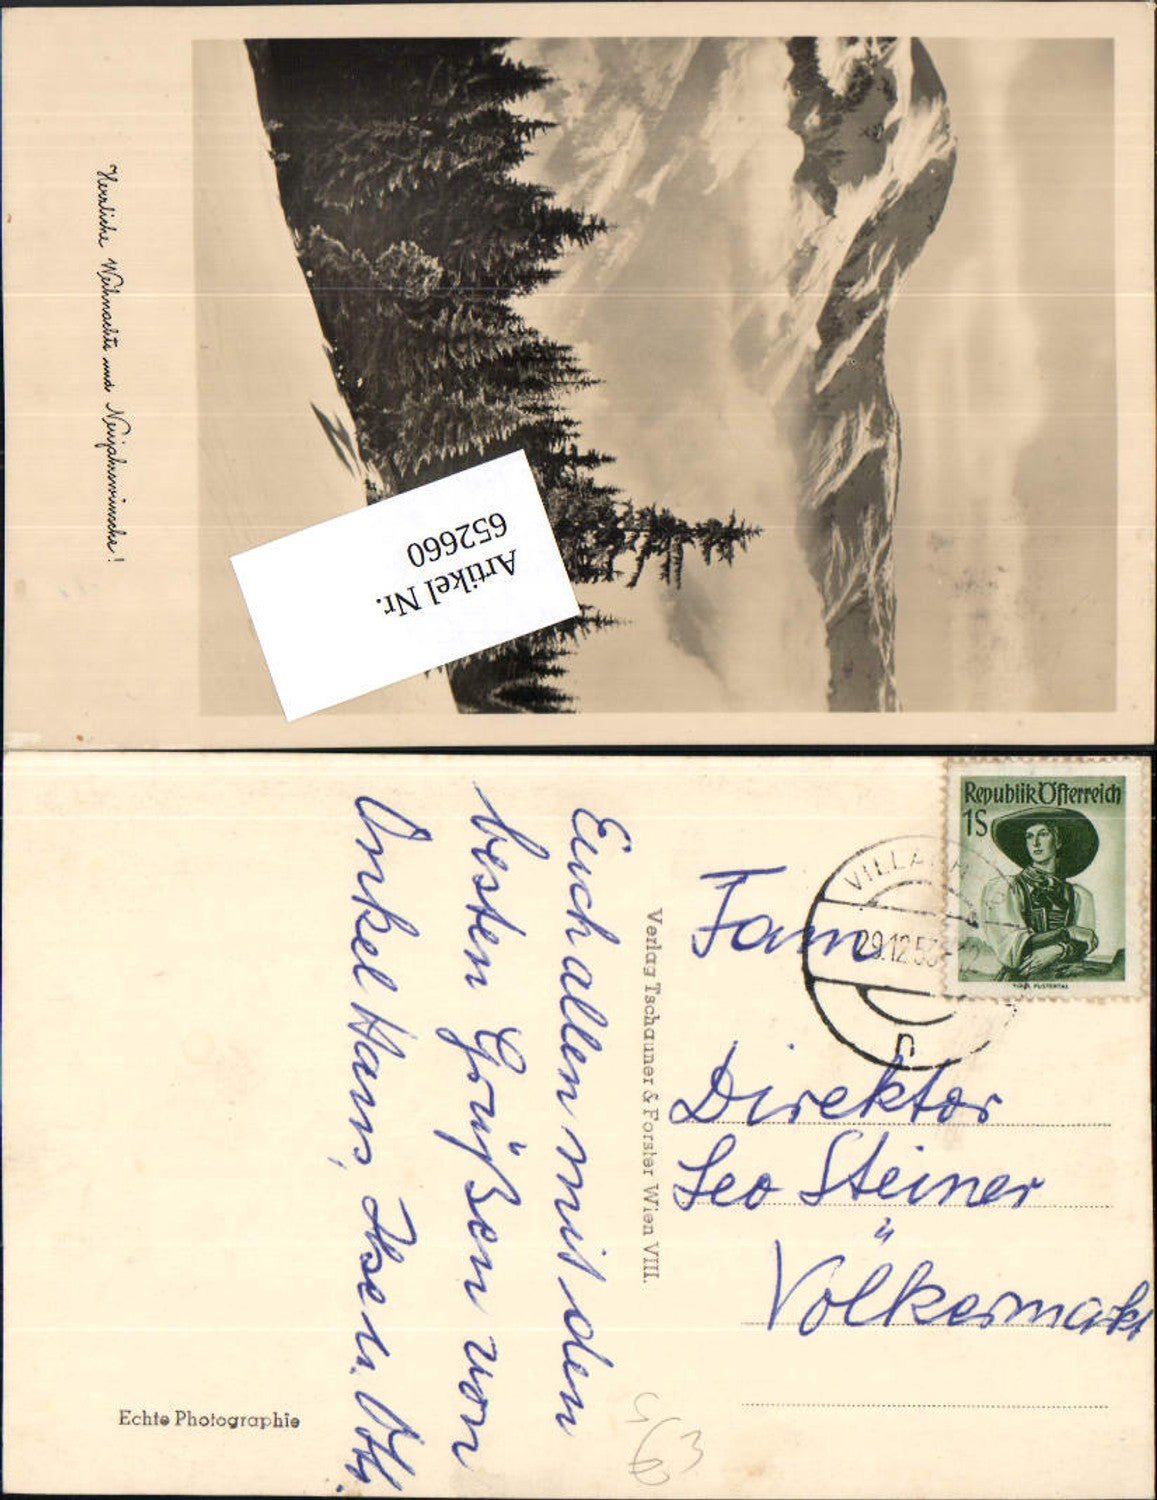 Herrliche Weihnachts und Neujahrswünsche!
Artikel Nr.
652660
Republik Österreich
1S
VILLACH
29.12.53
Fam
Direktor
Leo Steiner
Völkermarkt
Verlag Tschauner & Forster Wien VIII.
Euch allen mit den
besten Grüßen von
Onkel Hans, Ilse u. Otti.
Echte Photographie